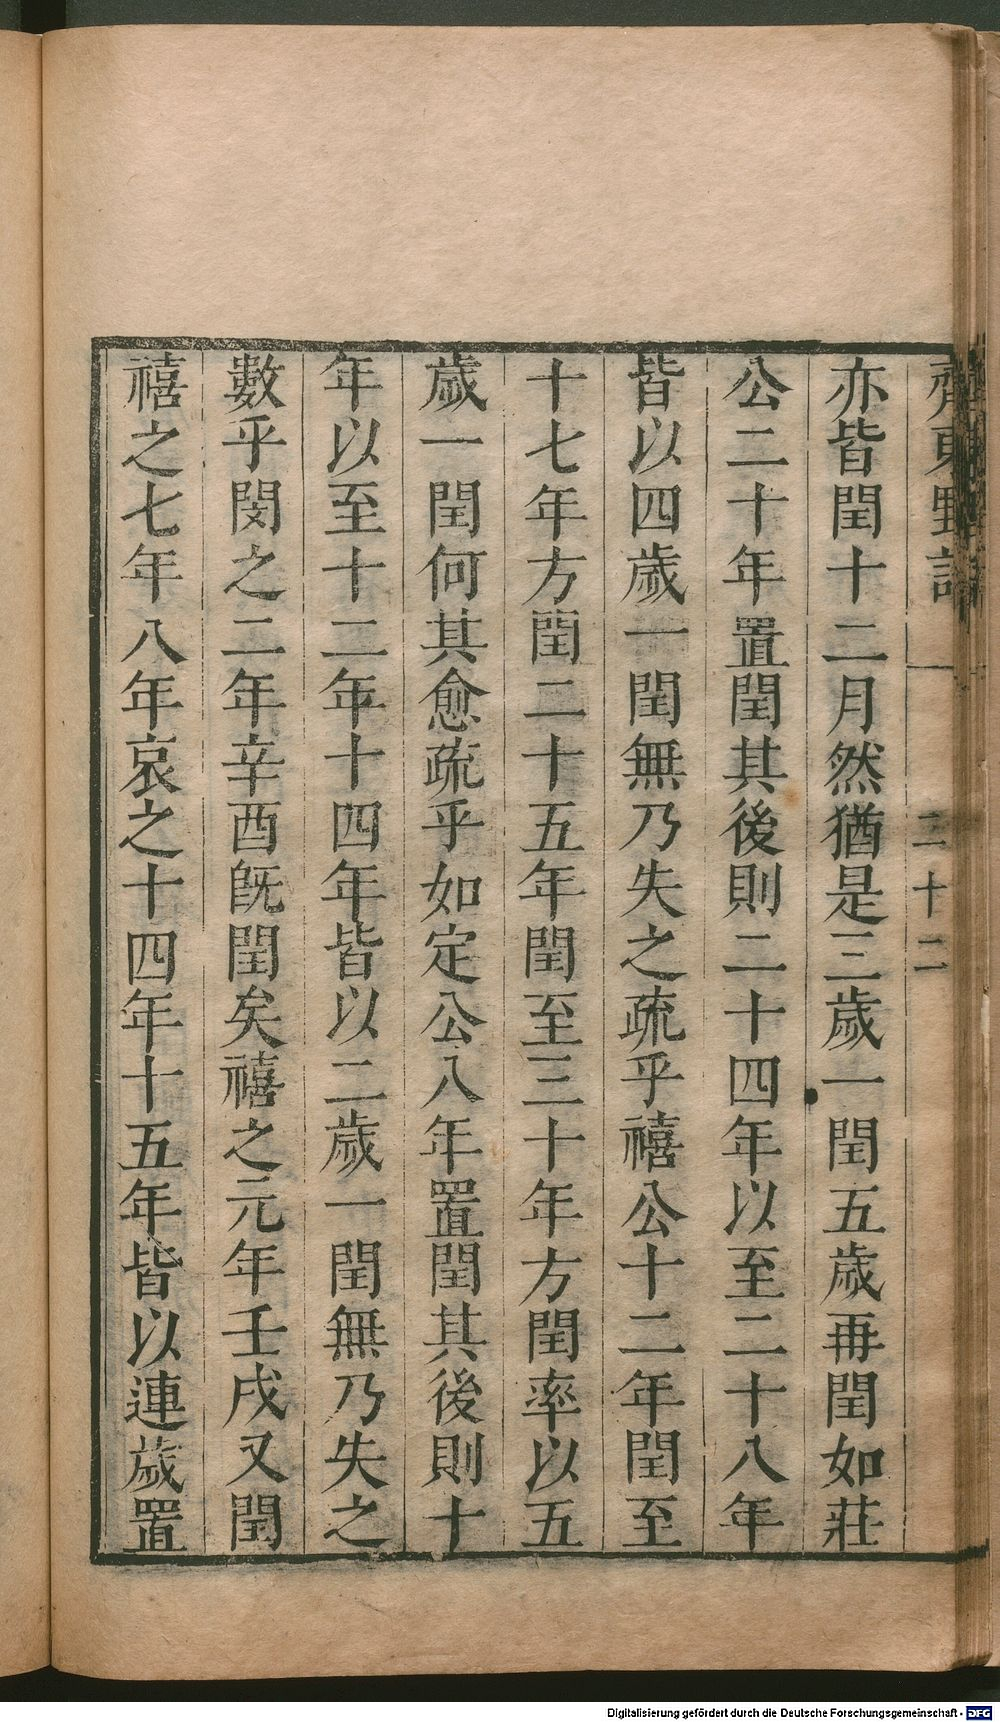 齊東野語
二十二
亦皆閏十二月然猶是三歲一閏五歲再閏如莊
公二十年置閏其後則二十四年以至二十八年
皆以四歲一閏無乃失之疏乎禧公十二年閏至
十七年方閏二十五年閏至三十年方閏率以五
歲一閏何其愈疏乎如定公八年置閏其後則十
年以至十二年十四年皆以二歲一閏無乃失之
數乎閔之二年辛酉旣閏矣禧之元年壬戌又閏
禧之七年八年哀之十四年十五年皆以連歲置
Digitalisierung gefördert durch die Deutsche Forschungsgemeinschaft - DFG